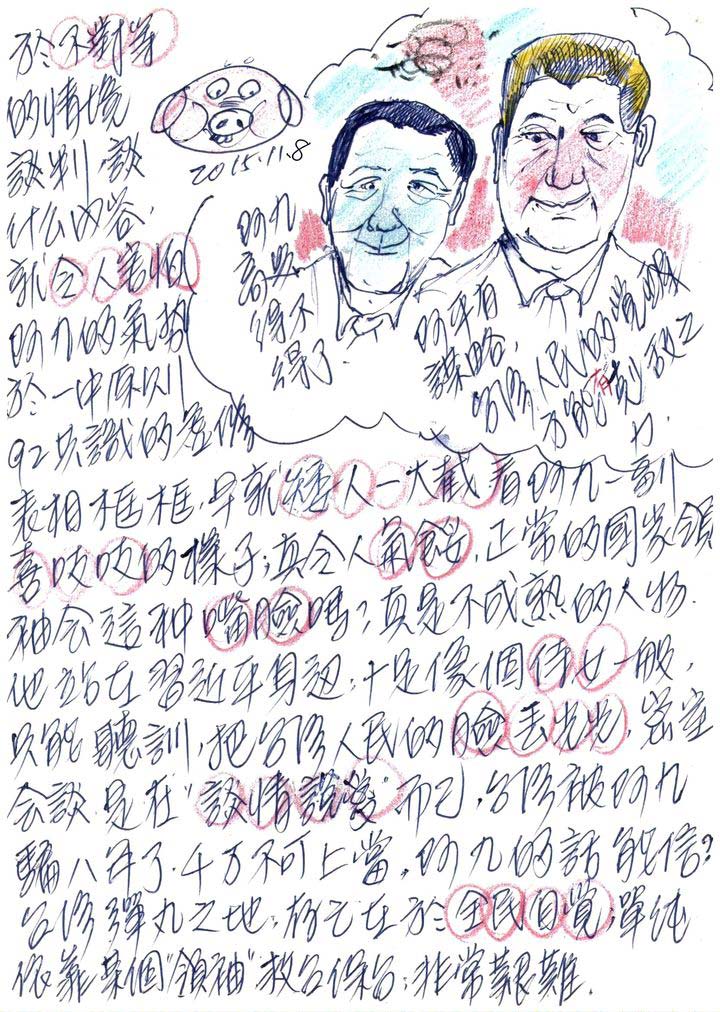 於不對等
的情境
談判,談
什么內容,
就令人害怕
阿九的氣勢
於一中原則
92共識的虛偽
2015.11.8
阿九
高興
得不
得了
阿平有
謀略,
台灣人民的覺醒
方能有剋敵之
力.
表相框框,早就矮人一大截看阿九一副
喜吱吱的樣子;真令人氣餒,正常的國家領
袖会這种嘴臉嗎?真是不成熟的人物.
他站在習近平身边,十足像個侍女一般,
只能聽訓,把台湾人民的臉丟光光,密室
会談是在"談情說愛"而已,台湾被阿九
騙八年了.千万不可上當,阿九的話能信?
台湾彈丸之地,存亡在於全民自覺;單純
依靠某個"領袖"救台保台;非常艱難.